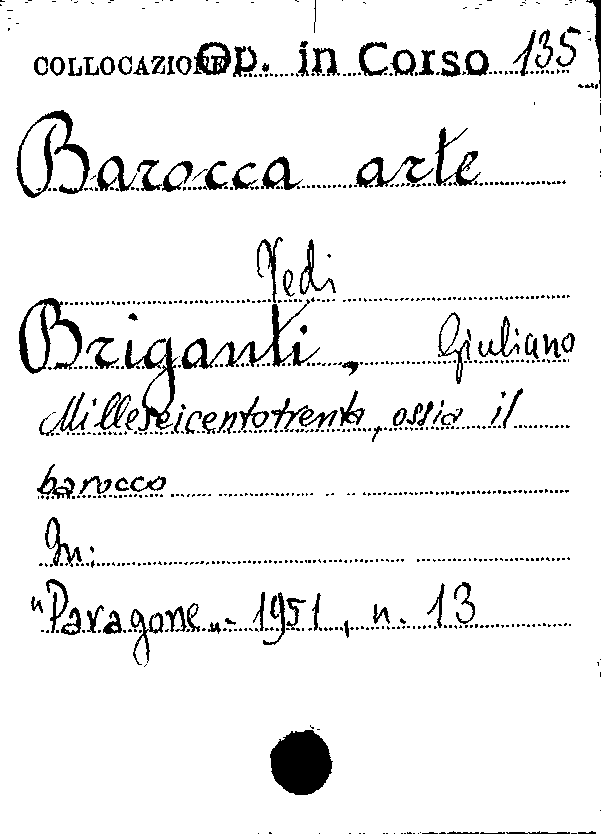 COLLOCAZIONE Op. in Corso 135
Barocca arte
Vedi
Briganti, Giuliano
Milleseicentotrenta, ossia il
barocco
In:
"Paragone„- 1951, n. 13